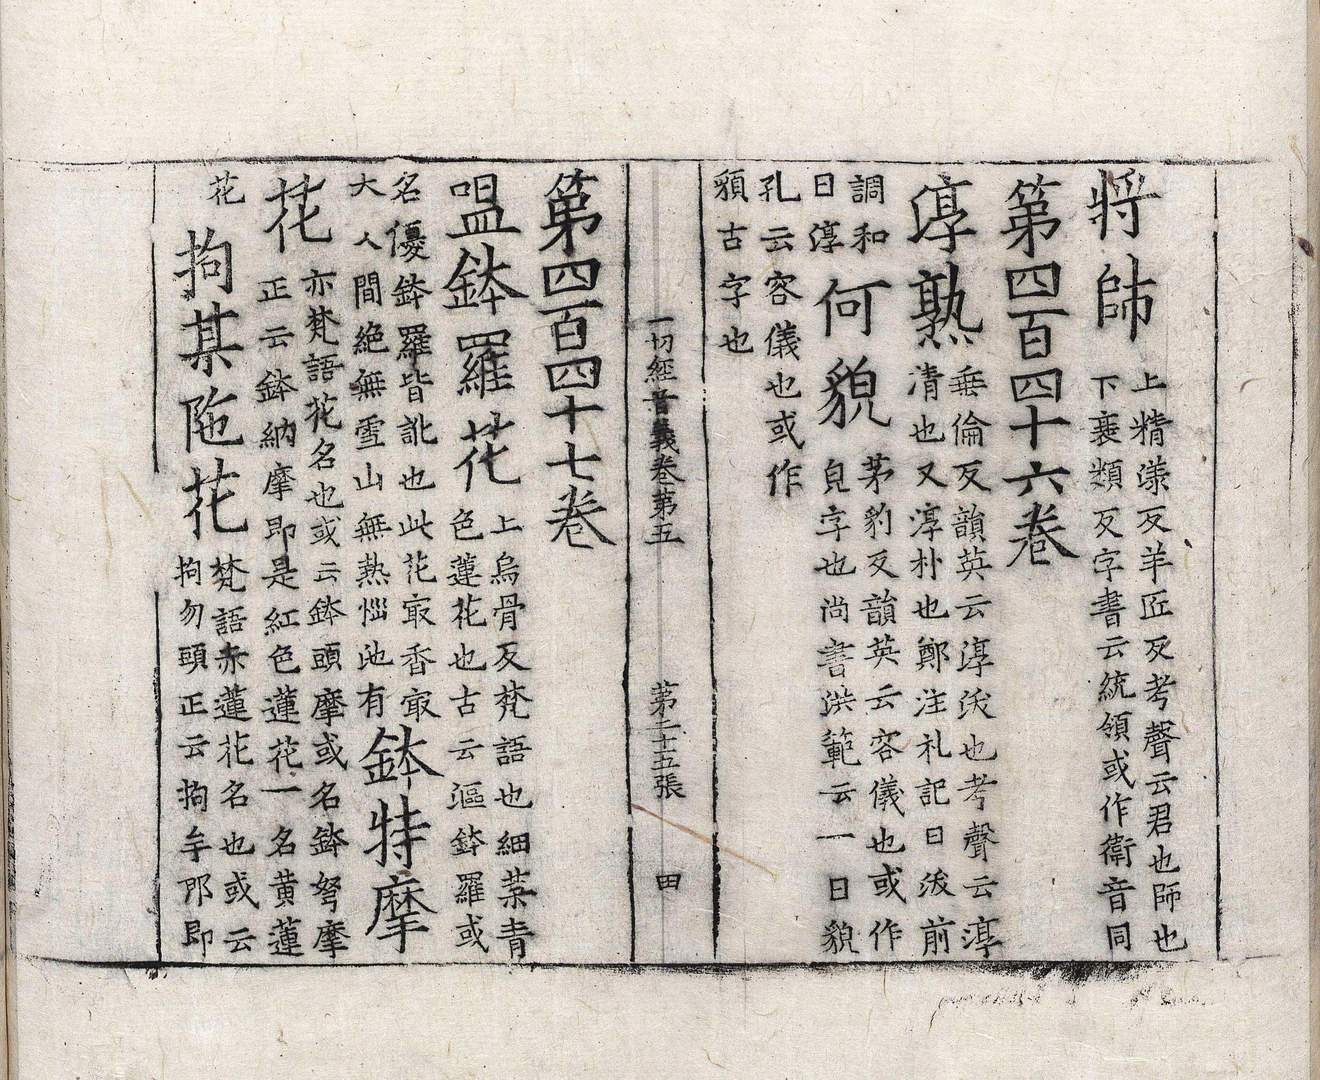 將帥上精漾反羊匠反考聲云君也師也
下衰類反字書云統領或作衛音同
第四百四十六卷
淳熟垂倫反韻英云淳淡也考聲云淳
清也又淳朴也鄭注礼記曰淡前
調和
曰淳
何貌茅豹反韻英云容儀也或作
皃字也尚書洪範云一曰貌
孔云容儀也或作
䫉古字也
一切經音義卷第五 第二十五張 田
第四百四十七卷
嗢鉢羅花上烏骨反梵語也細葉青
色蓮花也古云漚鉢羅或
名優鉢羅皆訛也此花㝡香㝡
大人間絶無雪山無熱惱池有
鉢特摩
花亦梵語花名也或云鉢頭摩或名鉢弩摩
正云鉢納摩即是紅色蓮花一名黄蓮
花
拘某陁花梵語赤蓮花名也或云
拘勿頭正云拘牟那即